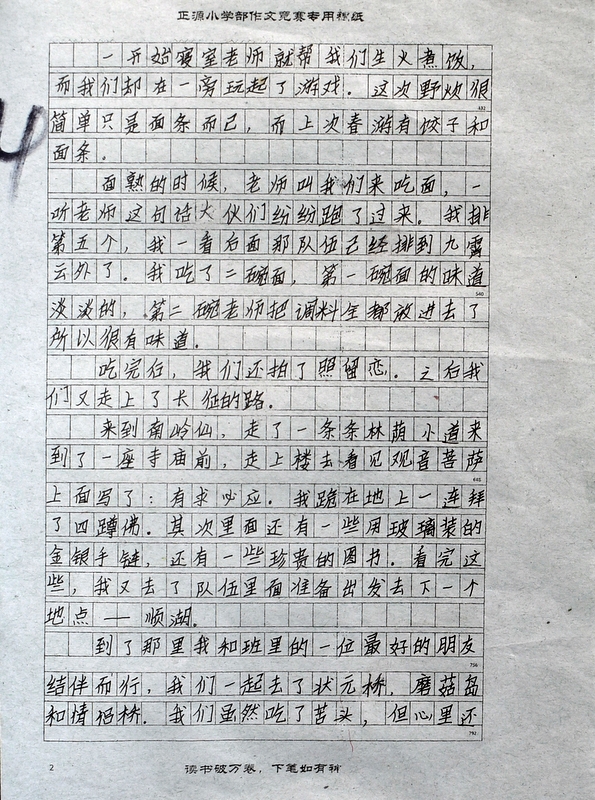 正源小学部作文竞赛专用稿纸
一开始寝室老师就帮我们生火煮饭，
而我们却在一旁玩起了游戏．这次野炊很
432
简单只是面条而已，而上次春游有饺子和
面条．
面熟的时候，老师叫我们来吃面，一
听老师这句话大伙们纷纷跑了过来．我排
第五个，我一看后面那队伍已经排到九霄
云外了．我吃了二碗面，第一碗面的味道
540
淡淡的，第二碗老师把调料全都放进去了
所以很有味道．
吃完后，我们还拍了照留恋．之后我
们又走上了长征的路．
来到南岭仙，走了一条条林荫小道来
到了一座寺庙前，走上楼去看见观音菩萨
648
上面写了：有求必应．我跪在地上一连拜
了四蹲佛．其次里面还有一些用玻璃装的
金银手链，还有一些珍贵的图书．看完这
些，我又去了队伍里面准备出发去下一个
地点——顺湖．
到了那里我和班里的一位最好的朋友
756
结伴而行，我们一起去了状元桥，磨菇岛
和情侣桥．我们虽然吃了苦头，但心里还
792
2 读书破万卷，下笔如有神